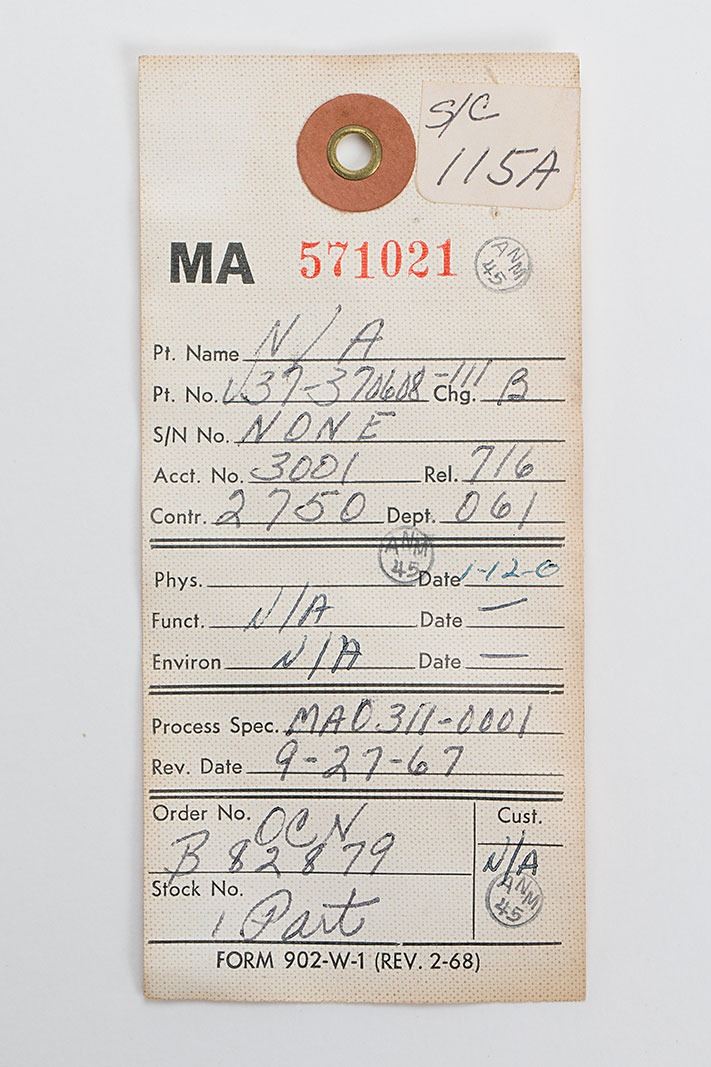 S/C
115A
MA 571021 ANM 45
Pt. Name N/A
Pt. No. V37-370608-111 Chg. B
S/N No. NONE
Acct. No. 3001 Rel. 716
Contr. 2750 Dept. 061
ANM 45
Phys. Date 1-12-0
Funct. N/A Date —
Environ N/A Date —
Process Spec. MA0311-0001
Rev. Date 9-27-67
Order No. OCN Cust.
B 82879 N/A
Stock No. ANM 45
1 Part
FORM 902-W-1 (REV. 2-68)